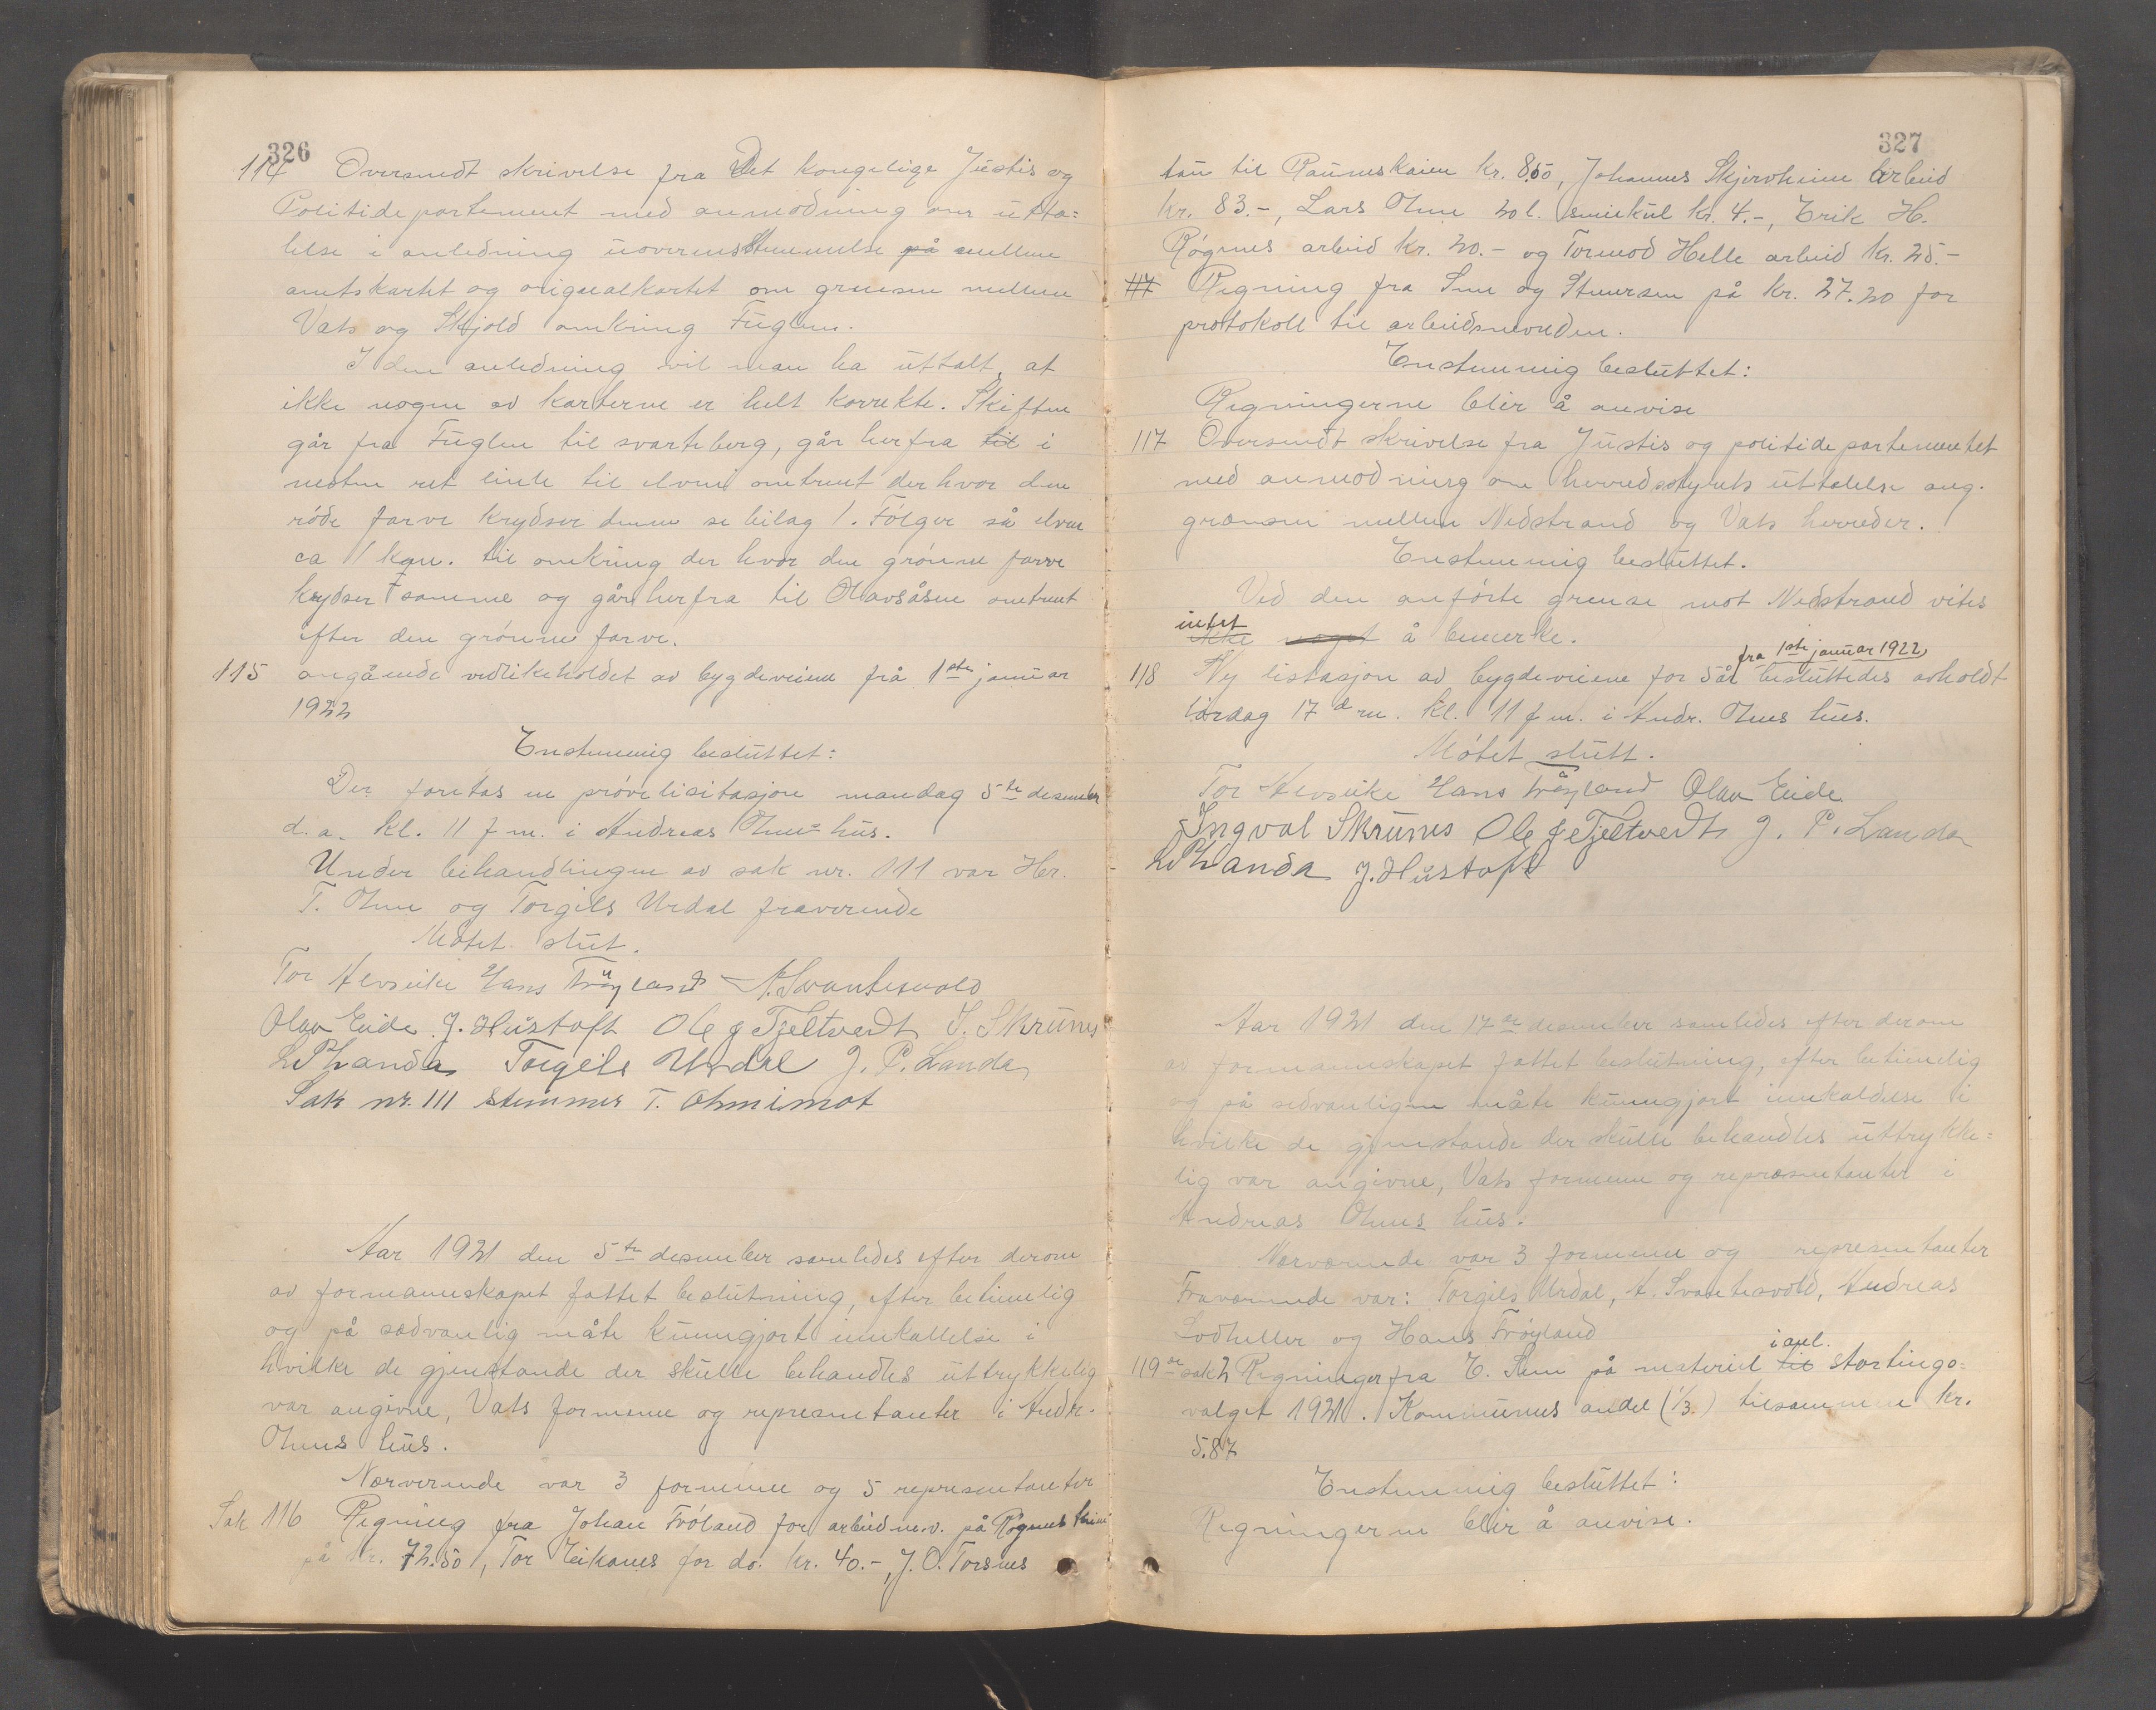 326
114 Oversendt skrivelse fra Det kongelige Justis og
Politidepartement med anmodning om utta=
lelse i anledning uoverensstemmelse på mellem
amtskartet og originalkartet om grensen mellem
Vats og Skjold omkring Fuglen.
I den anledning vil man ha uttalt, at
ikke nogen av karterne er helt korrekte. Skiften
går fra Fuglen til svarteberg, går herfra til i
nesten ret linle til elven omtrent der hvor den
røde farve krydser denne se bilag 1. Følger så elven
ca 1 kgm. til omkring der hvor den grønne farve
krydser samme og går herfra til Olavsåsen omtrent
efter den grønne farve.
115 angående vedlikeholdet av bygdeveiene frå 1ste januar
1922
Enstemmig besluttet:
Der foretas en prøvelisitasjon mandag 5te desember
d. a. kl. 11 f m. i Andreas Ohms hus.
Under behandlingen av sak nr. 111 var Hr.
T. Ohm og Torgils Urdal fraverende
Møtet slut.
Tor Alvseike Hans Frøyland A. Svantesvold
Olav Eide J. Hustoft Ole J Tjeltvedt I. Skrunes
L P Landa Torgils Urdal J. P. Landa
Sak nr. 111 stemmer T. Ohm imot
Aar 1921 den 5te desember samledes efter derom
av formannskapet fattet beslutning, efter betimelig
og på sædvanlig måte kunngjort innkallelse i
hvilke de gjenstande der skulle behandles uttrykkelig
var angivne, Vats formenn og representanter i Andr.
Ohms hus.
Nærverende var 3 formenn og 5 representanter
Sak 116 Regning fra Johan Frøland for arbeid m.v. på Røgnes kai
på kr. 72.50, Tor Eikanes for do. kr. 40.-, J. O. Torsnes
327
tau til Raunneskaien kr. 8.50, Johannes Skjervheim arbeid
kr. 83.-, Lars Ohm 20 l. smiekul kr. 4.-, Erik H.
Røgnes arbeid kr. 20.- og Tormod Helle arbeid kr. 25.-
117 Regning fra Sem og Stenersen på kr. 27.20 for
protokoll til arbeidsnevnden.
Enstemmig besluttet:
Regningerne blir å anvise
117 Oversendt skrivelse fra Justis og politidepartementet
med anmodning om herredsstyrets uttalelse ang.
grænsen mellem Nedstrand og Vats herreder.
Enstemmig besluttet.
Ved den anførte grense mot Nedstrand vites
intet
ikke noget å bemerke.
fra 1ste januar 1922
118 Ny lisitasjon av bygdeveiene for 5 år besluttedes avholdt
lørdag 17 d m. kl. 11 f m. i Andr. Ohms hus.
Møtet slutt.
Tor Alvseike Hans Frøyland Olav Eide
Ingval Skrunes Ole J Tjeltvedt J. P. Landa
L P Landa J. Hustoft
Aar 1921 den 17de desember samledes efter derom
av formannskapet fattet beslutning, efter betimelig
og på sedvanligen måte kunngjort innkaldelse i
hvilke de gjenstande der skulle behandles uttrykke=
lig var angivne, Vats formenn og representanter i
Andreas Ohms hus.
Nærværende var 3 formenn og representanter
Fraværende var: Torgils Urdal, A. Svantesvold, Andreas
Lodheller og Hans Frøyland
i anl.
119de sak 2 Regninger fra E. Sem på materiel til stortings=
valget 1921. Kommunens andel (1/3) tilsammen kr.
5.87
Enstemmig besluttet:
Regningerne blir å anvise.